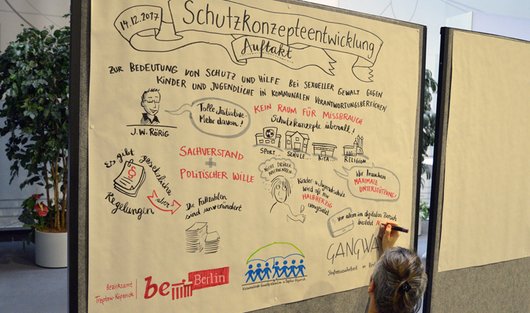 14.12.2017
Schutzkonzepteentwicklung
Auftakt
Zur Bedeutung von Schutz und Hilfe bei sexueller Gewalt gegen
Kinder und Jugendliche in kommunalen Verantwortungsbereichen
J.W. Rörig
Tolle Initiative
Mehr davon!
Kein Raum für Missbrauch
Schutzkonzepte überall!
Sport
Schule
Kita
Religion
Es gibt
gesetzliche
Regelungen
aber
Sachverstand
+
Politischer Wille
Die Fallzahlen
sind unverändert
Kinder- u. Jugendschutz
wird oft nur
halbherzig
umgesetzt
Wir brauchen
maximale
Unterstützung!
vor allem im digitalen Bereich
besteht
GANGWA
Bezirksamt
Treptow-Köpenick
be Berlin